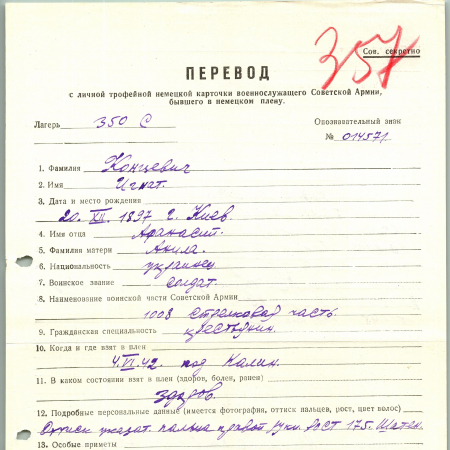 357
Сов. секретно
ПЕРЕВОД
с личной трофейной немецкой карточки военнослужащего Советской Армии,
бывшего в немецком плену.
Лагерь 350 С
Опознавательный знак
№ 014571
1. Фамилия Концевич
2. Имя Игнат.
3. Дата и место рождения
20. XII. 1897 г. Киев
4. Имя отца Афанасит.
5. Фамилия матери Анила.
6. Национальность украинец
7. Воинское звание солдат.
8. Наименование воинской части Советской Армии
1008 стрелковая часть
9. Гражданская специальность крестьянин.
10. Когда и где взят в плен
4. VI. 42. под Калин.
11. В каком состоянии взят в плен (здоров, болен, ранен)
здоров.
12. Подробные персональные данные (имеется фотография, оттиск пальцев, рост, цвет волос)
Оттиск указат. пальца правой руки. рост 175. Шатен.
13. Особые приметы